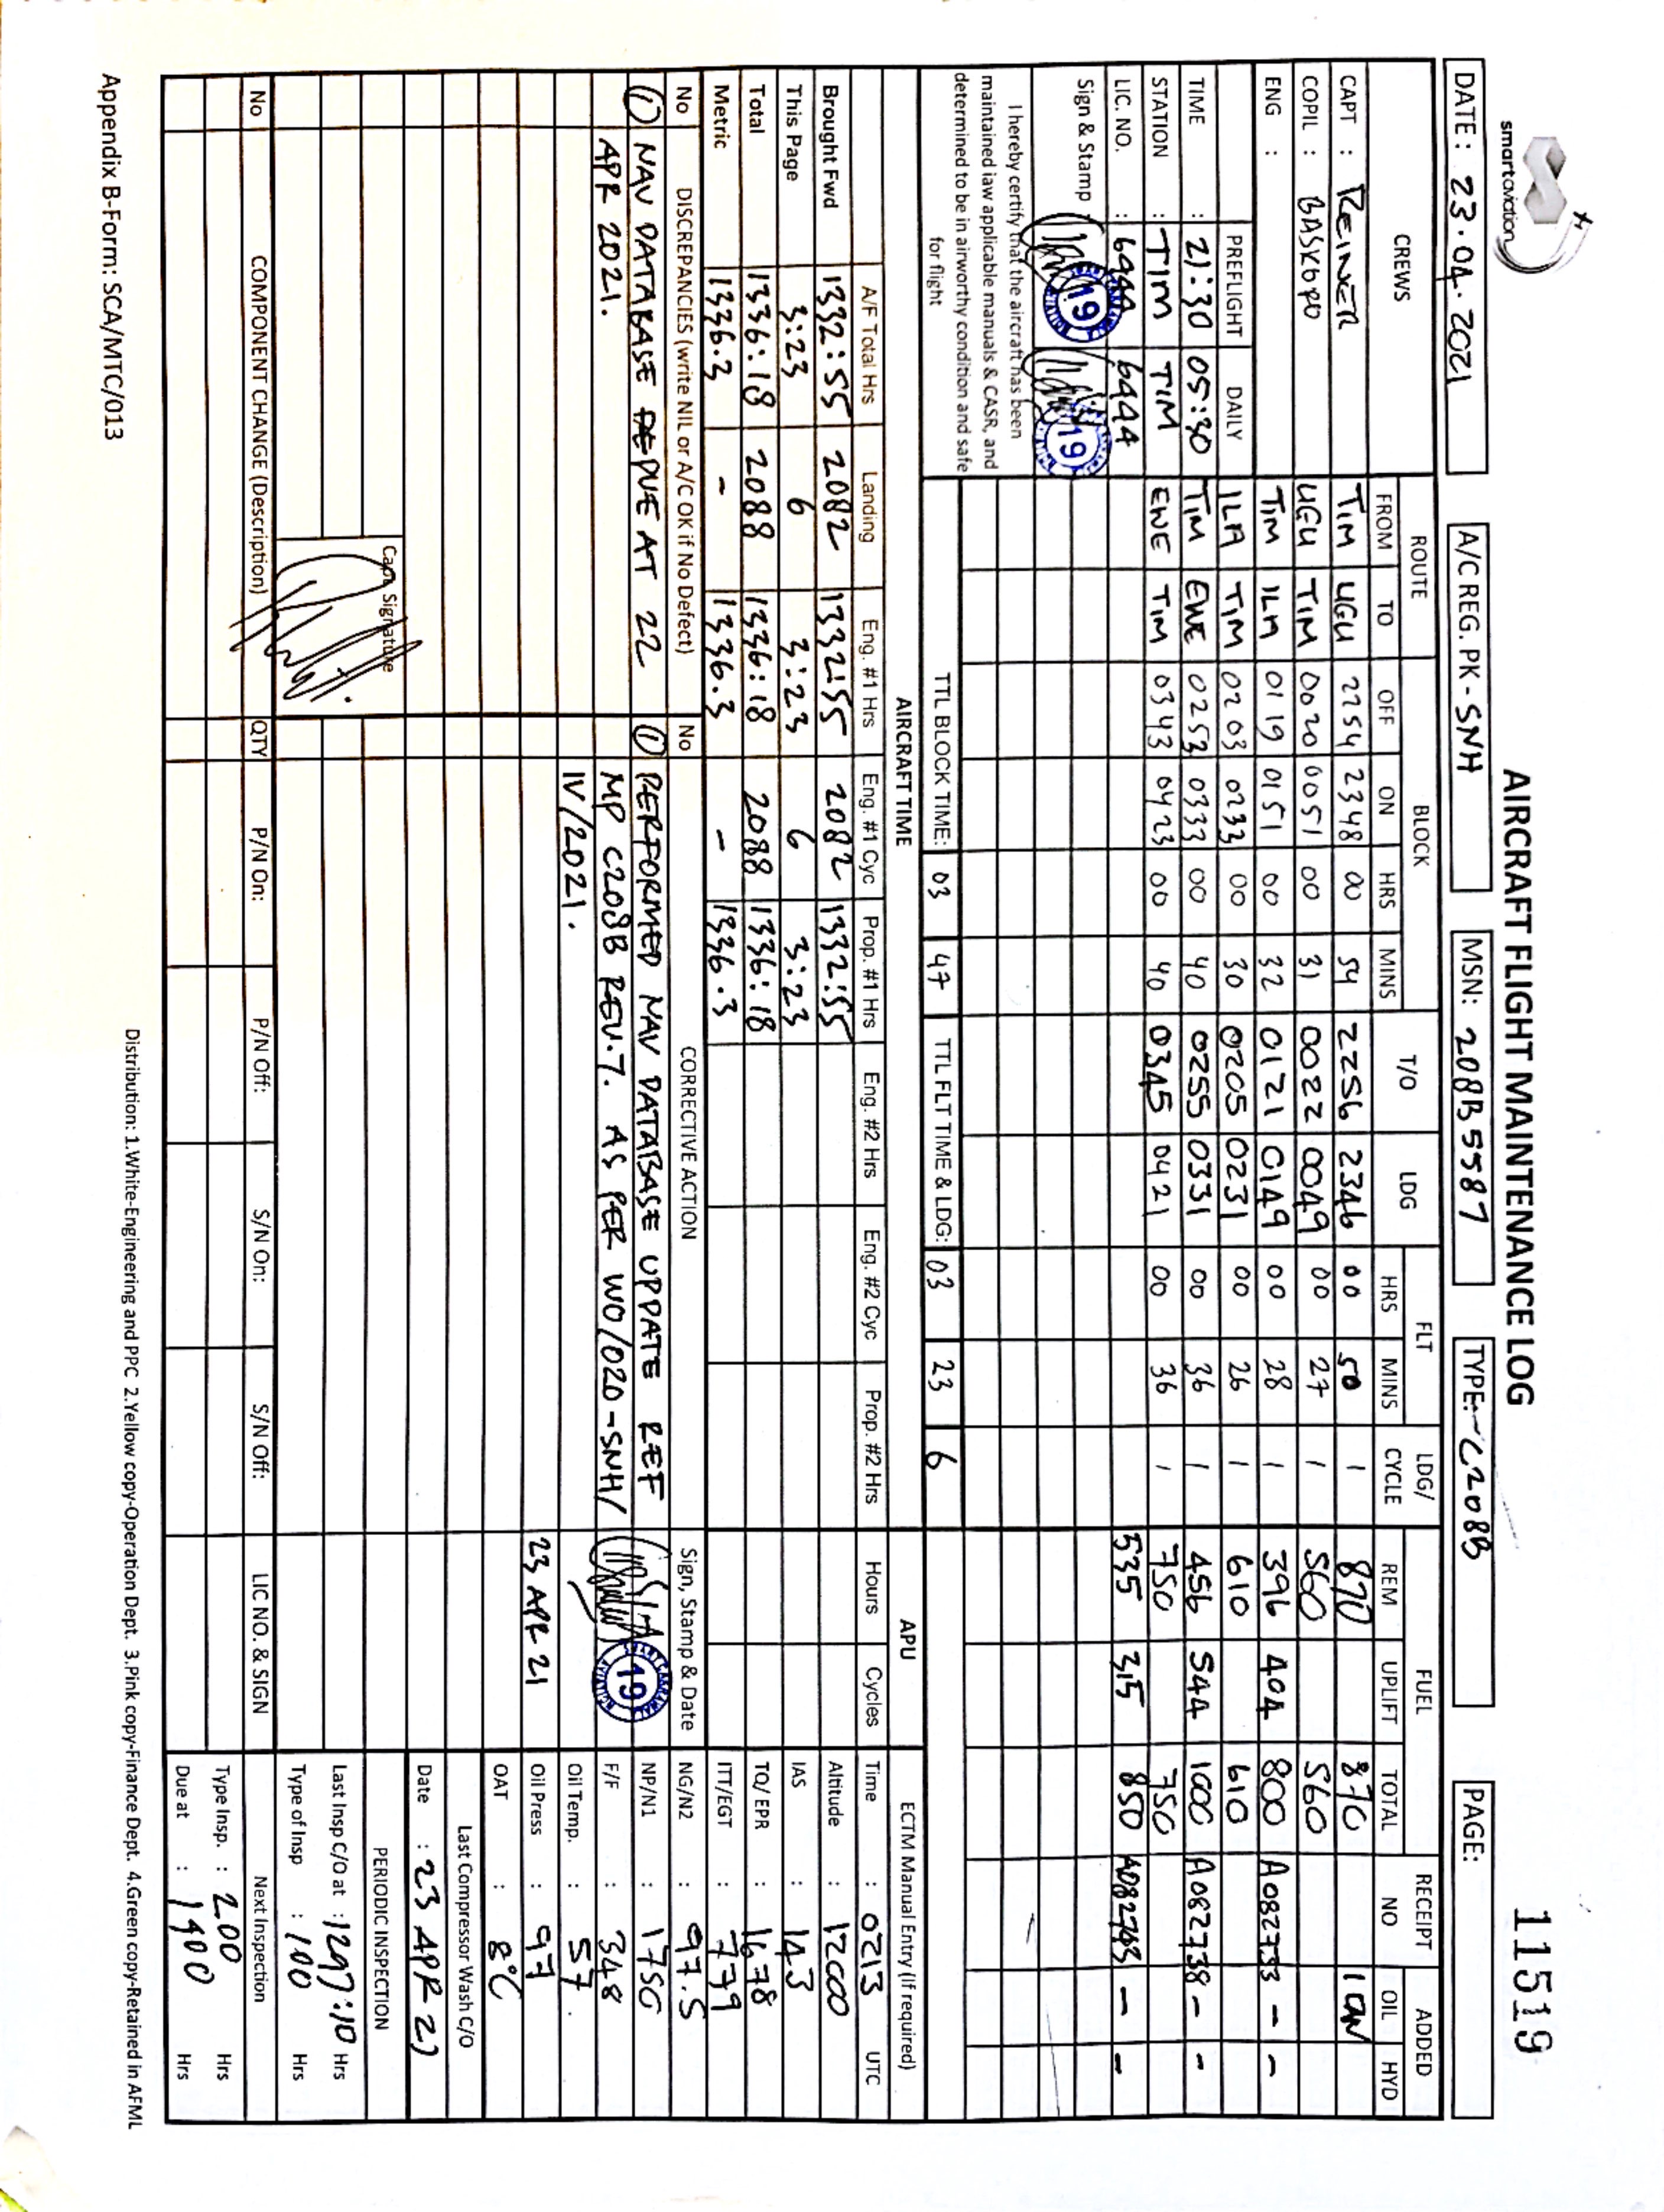 smartaviation
AIRCRAFT FLIGHT MAINTENANCE LOG
11519
DATE : 23.04.2021
A/C REG. PK - SNH
MSN: 208B5587
TYPE: C208B
PAGE:
CREWS ROUTE BLOCK T/O LDG FLT LDG/ CYCLE FUEL RECEIPT NO ADDED
FROM TO OFF ON HRS MINS HRS MINS REM UPLIFT TOTAL OIL HYD
CAPT : REINER TIM UGU 2254 2348 00 54 2256 2346 00 50 1 870 870
COPIL : UGU TIM 0020 0051 00 31 0022 0049 00 27 1 560 560
ENG : TIM ILA 0119 0151 00 32 0121 0149 00 28 1 396 404 800 A082733 - -
PREFLIGHT DAILY ILA TIM 0203 0233 00 30 0205 0231 00 26 1 610 610
TIME : 21:30 05:30 TIM EWE 0253 0333 00 40 0255 0331 00 36 1 456 544 1000 A082738 - -
STATION : TIM TIM EWE TIM 0343 0423 00 40 0345 0421 00 36 1 750 750
LIC. NO. : 6444 6444 535 315 850 A082743 - -
Sign & Stamp 19 19
I hereby certify that the aircraft has been
maintained iaw applicable manuals & CASR, and
determined to be in airworthy condition and safe
for flight
TTL BLOCK TIME: 03 47 TTL FLT TIME & LDG: 03 23 6
AIRCRAFT TIME APU ECTM Manual Entry (If required)
A/F Total Hrs Landing Eng. #1 Hrs Eng. #1 Cyc Prop. #1 Hrs Eng. #2 Hrs Eng. #2 Cyc Prop. #2 Hrs Hours Cycles Time : 0213 UTC
Brought Fwd 1332:55 2082 1332:55 2082 1332:55 Altitude : 12000
This Page 3:23 6 3:23 6 3:23 IAS : 143
Total 1336:18 2088 1336:18 2088 1336:18 TQ/ EPR : 1678
Metric 1336.3 - 1336.3 - 1336.3 ITT/EGT : 779
No DISCREPANCIES (write NIL or A/C OK if No Defect) No CORRECTIVE ACTION Sign, Stamp & Date NG/N2 : 97.5
1 NAV DATABASE DUE AT 22 1 PERFORMED NAV DATABASE UPDATE REF 19 NP/N1 : 1750
APR 2021. MP C208B REV.7. AS PER WO/020-SNH/ F/F : 348
IV/2021. Oil Temp. : 57.
23 APR 21 Oil Press : 97
OAT : 8°C
Last Compressor Wash C/O
Date : 23 APR 21
Capt Signature
PERIODIC INSPECTION
Last Insp C/O at : 1297:10 Hrs
Type of Insp : 100 Hrs
No COMPONENT CHANGE (Description) QTY P/N On: P/N Off: S/N On: S/N Off: LIC NO. & SIGN Next Inspection
Type Insp. : 200 Hrs
Due at : 1400 Hrs
Distribution: 1.White-Engineering and PPC 2.Yellow copy-Operation Dept. 3.Pink copy-Finance Dept. 4.Green copy-Retained in AFML
Appendix B-Form: SCA/MTC/013